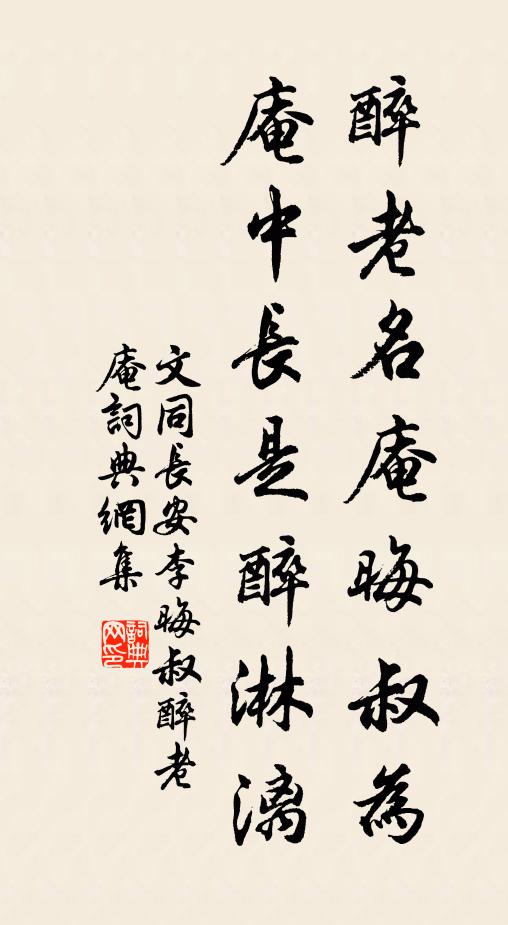 醉老名庵晦叔為
庵中長是醉淋漓
文同長安李晦叔醉老
庵詞典網集
詞典
网印